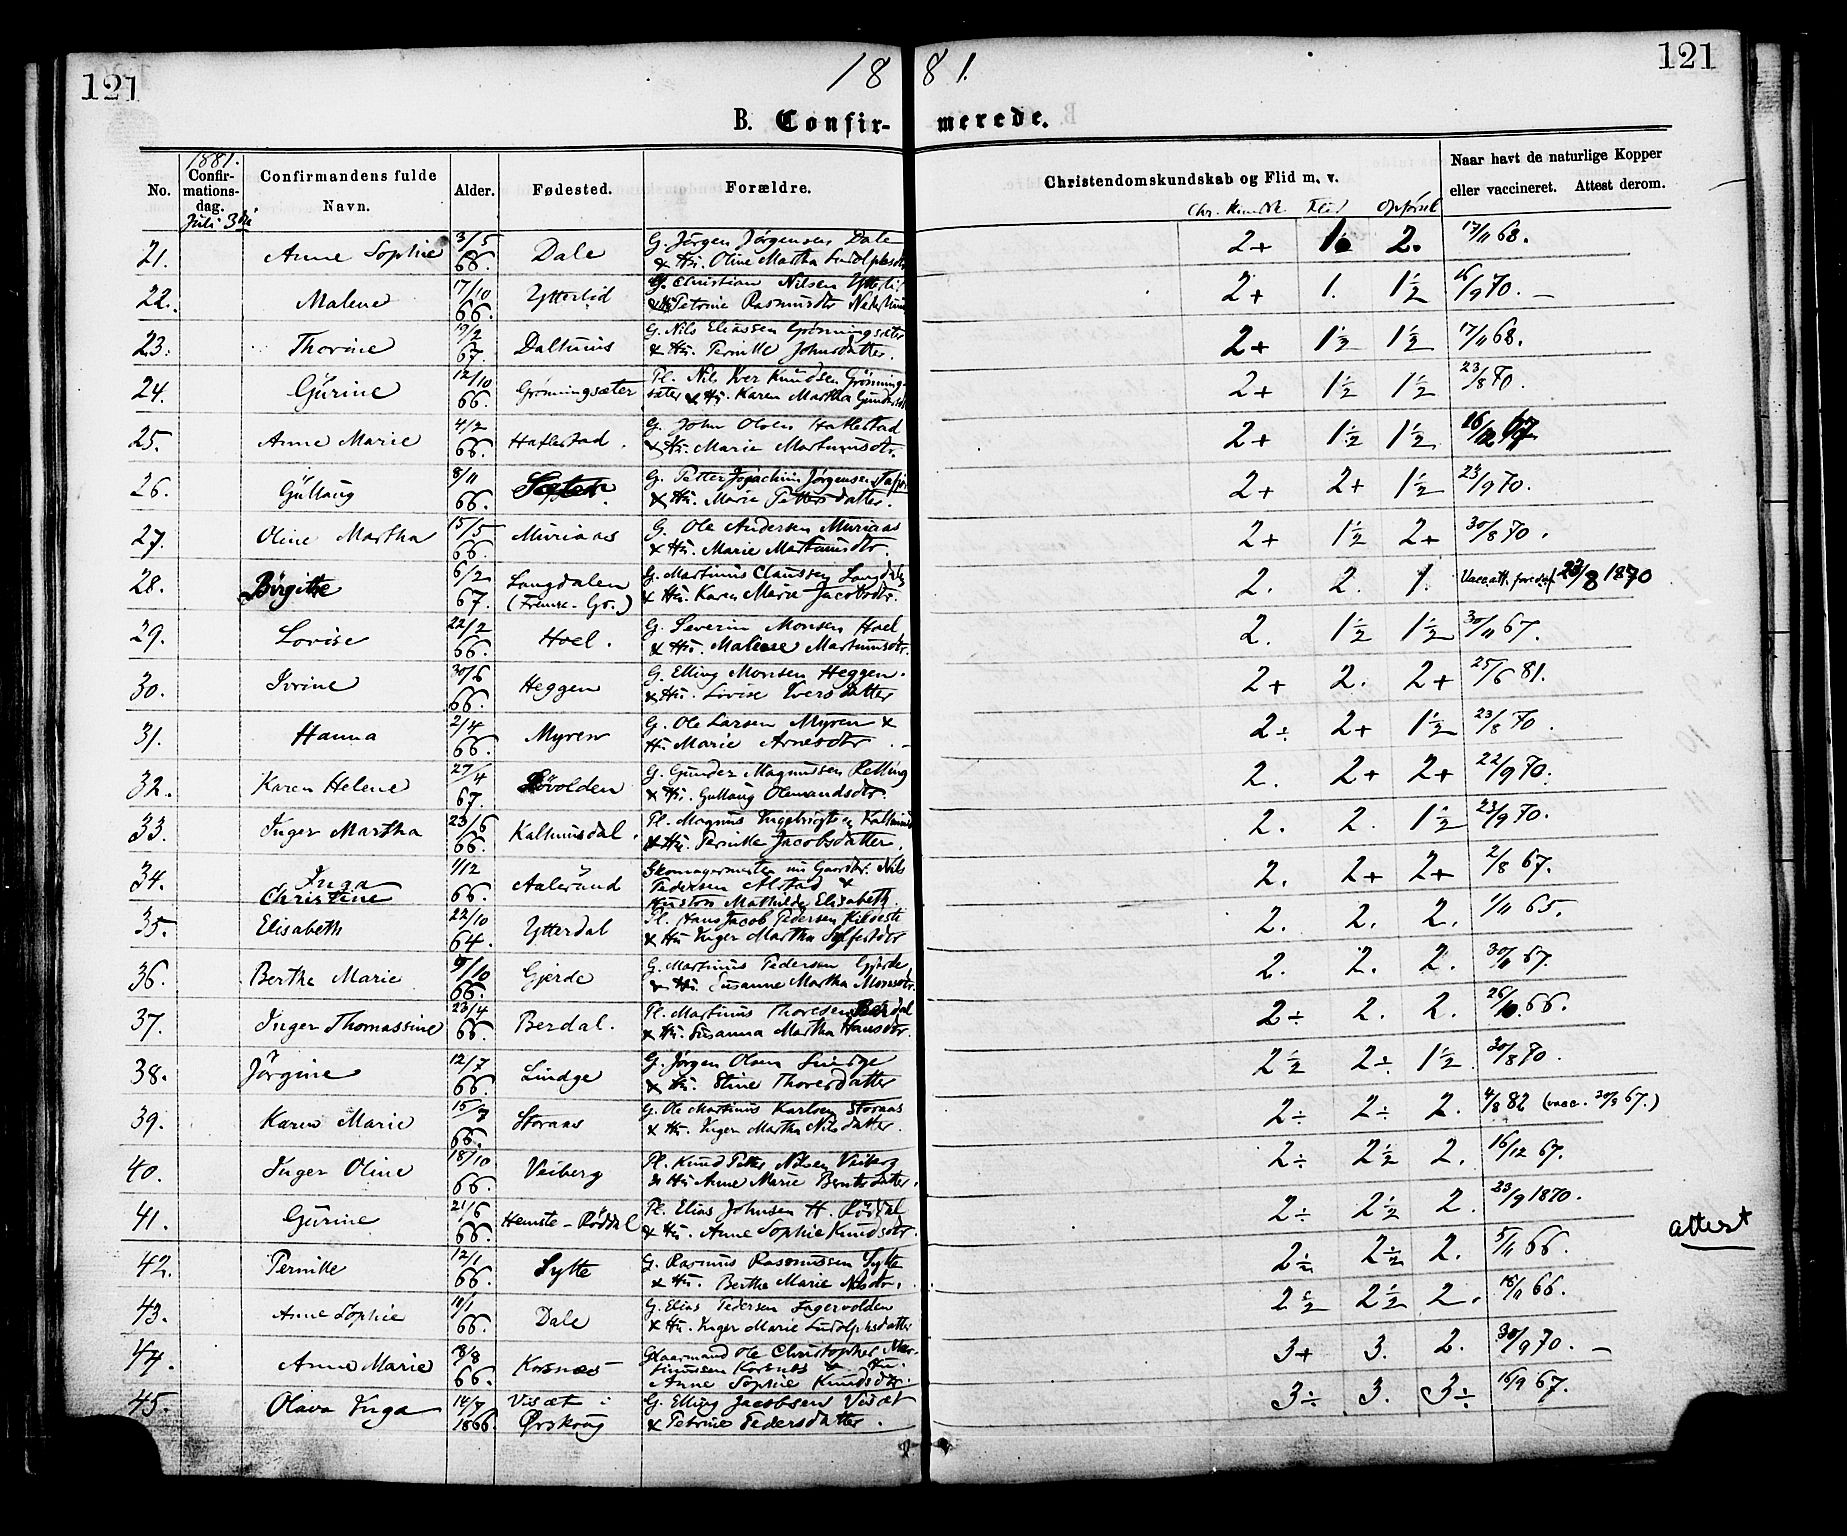 121 1881. 121
B. Confir- merede.
No. 1881. Confir-mations-dag. Confirmandens fulde Navn. Alder. Fødested. Forældre. Christendomskundskab og Flid m. v. Naar havt de naturlige Kopper eller vaccineret. Attest derom.
Juli 3die Chr. Kundsk. Flid Opførsel
21. Anne Sophie 3/5 68. Dale G. Jørgen Jørgensen Dale 2+ 1 2. 17/11 68.
& Hu. Oline Martha Ludolphsdtr
22. Malene 17/10 66. Ytterlid G. Christian Nilsen Ytterli 2+ 1. 1½ 16/9 70. —
& Hu Petrine Rasmusdtr
23. Thorine 19/2 67. Dalhuus G. Nils Eliassen Grønningsæter 2+ 1½ 1½ 17/11 68.
& Hu. Pernille Johnsdatter.
24. Gurine 12/10 66. Grønningsæter Pl. Nils Iver Knudsen Grønning- 2+ 1½ 1½ 23/8 70.
sæter & Hu. Karen Martha Gundersdt
25. Anne Marie 4/2 66. Haflestad. G. John Olsen Haflestad 2+ 1½ 1½
& Hu. Marie Martinusdtr.
26. Gullaug 8/11 66. G. Petter Jogachim Jørgensen Tafjor 2+ 2+ 1½ 23/9 70.
& Hu. Marie Pettersdatter.
27. Oline Martha 15/5 66. Muriaas G. Ole Andersen Muriaas 2+ 1½ 2+ 30/8 70.
& Hu. Marie Martinusdtr.
28. Birgitte 6/2 67. Langdalen G. Martinus Claussen Langdalen 2. 2. 1. Vacc. att. 23/8 1870
& Hu. Karen Marie Jacobsdtr.
29. Lovise 22/2 66. Hoel. G. Severin Monsen Hoel 2. 1½ 1½ 30/11 67.
& Hu. Malene Martinusdtr.
30. Ivrine 30/6 66. Heggen G. Elling Monsen Heggen. 2+ 2. 2+ 25/6 81.
& Hu. Lovise Iversdatter
31. Hanna 2/4 66. Myren G. Ole Larsen Myren & 2÷ 2+ 1½ 23/8 70.
H. Marie Arnesdtr.
32. Karen Helene 27/4 67. Løvolden G. Gunder Magnussen Relling 2. 2+ 2+ 22/9 70.
& Hu. Gullaug Olemandsdtr.
33. Inger Martha 23/6 66. Kalhuusdal. Pl. Magnus Ingebrigtsen Kalhuusd 2. 2. 1½ 23/9 70.
& Hu. Pernille Jacobsdatter.
34. Inga Christine 1/12 66. Aalesund Skomagermester nu Gaardbr. Nils 2. 2+ 2+ 2/8 67.
Pedersen Alstad &
Hustru Mathilde Elisabeth.
35. Elisabeth 22/10 64. Ytterdal Pl. Hans Jacob Pedersen Kilveste 2. 2. 2. 1/11 65.
& Hu Inger Martha Sylfestdtr
36. Berthe Marie 9/10 66. Gjerde G. Martinus Pedersen Gjerde 2. 2. 2. 30/11 67.
& Hu. Susanne Martha Monsdtr.
37. Inger Thomassine 23/4 66. Berdal. Pl. Martinus Thoresen Berdal 2÷ 2. 2. 26/10 66.
& Hu. Susanna Martha Hansdtr.
38. Jørgine 12/7 66. Lindge G. Jørgen Olsen Lindge 2½ 2÷ 1½ 30/8 70.
& Hu. Stine Thoresdatter
39. Karen Marie 15/7 66. Storaas G. Ole Martinus Karlsen Storaas 2÷ 2÷ 2. 4/8 82 (vacc. 30/9 67.)
& Hu. Inger Martha Nilsdatter.
40. Inger Oline 18/10 66. Veiberg Pl. Knud Petter Nilsen Veiberg 2÷ 2½ 2. 16/12 67.
& Hu Anne Marie Berntsdatter.
41. Gurine 21/6 66. Hemste-Røddal Pl. Elias Johnsen H. Røddal 2÷ 2½ 2. 23/9 1870.
& Hu. Anne Sophie Knudsdtr. attest
42. Pernille 12/1 66. Sylte G. Rasmus Rasmussen Sylte 2½ 2½ 2. 5/11 66.
& Hu. Berthe Marie Nilsdtr.
43. Anne Sophie 10/1 66. Dale G. Elias Pedersen Fagervolden 2½ 2½ 2. 15/11 66.
& Hu. Inger Marie Ludolphsdatter
44. Anne Marie 18/8 66. Korsnæs Gaarmand Ole Christopher Mar- 3+ 3. 2. 30/9 70. —
tinussen Korsnæs & Hu.
Anne Sophie Knudsdtr.
45. Olava Inga 14/9 1866. Visæt i Ørskoug G. Elling Jacobsen Visæt 3÷ 3. 3÷ 16/9 67.
& Petrine Pedersdatter.